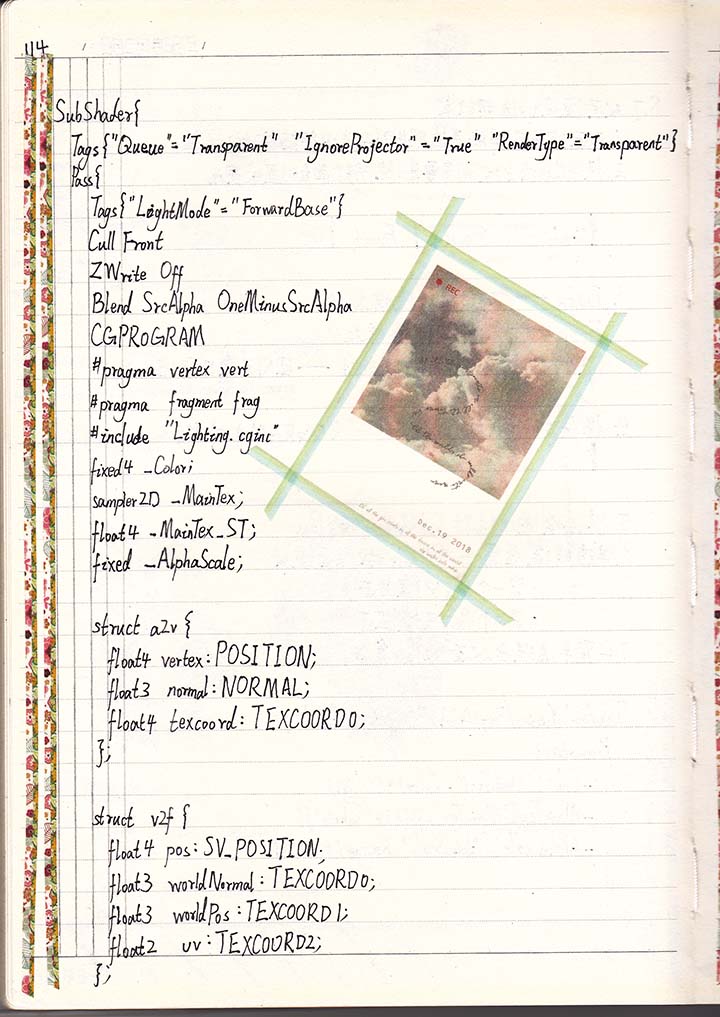 114
SubShader{
Tags{"Queue"="Transparent" "IgnoreProjector"="True" "RenderType"="Transparent"}
Pass{
Tags{"LightMode"="ForwardBase"}
Cull Front
ZWrite Off
Blend SrcAlpha OneMinusSrcAlpha
CGPROGRAM
#pragma vertex vert
#pragma fragment frag
#include "Lighting.cginc"
fixed4 _Color;
sampler2D _MainTex;
float4 _MainTex_ST;
fixed _AlphaScale;
struct a2v {
float4 vertex: POSITION;
float3 normal: NORMAL;
float4 texcoord: TEXCOORD0;
};
struct v2f {
float4 pos: SV_POSITION;
float3 worldNormal: TEXCOORD0;
float3 worldPos: TEXCOORD1;
float2 uv: TEXCOORD2;
};
REC
Dec.19 2018